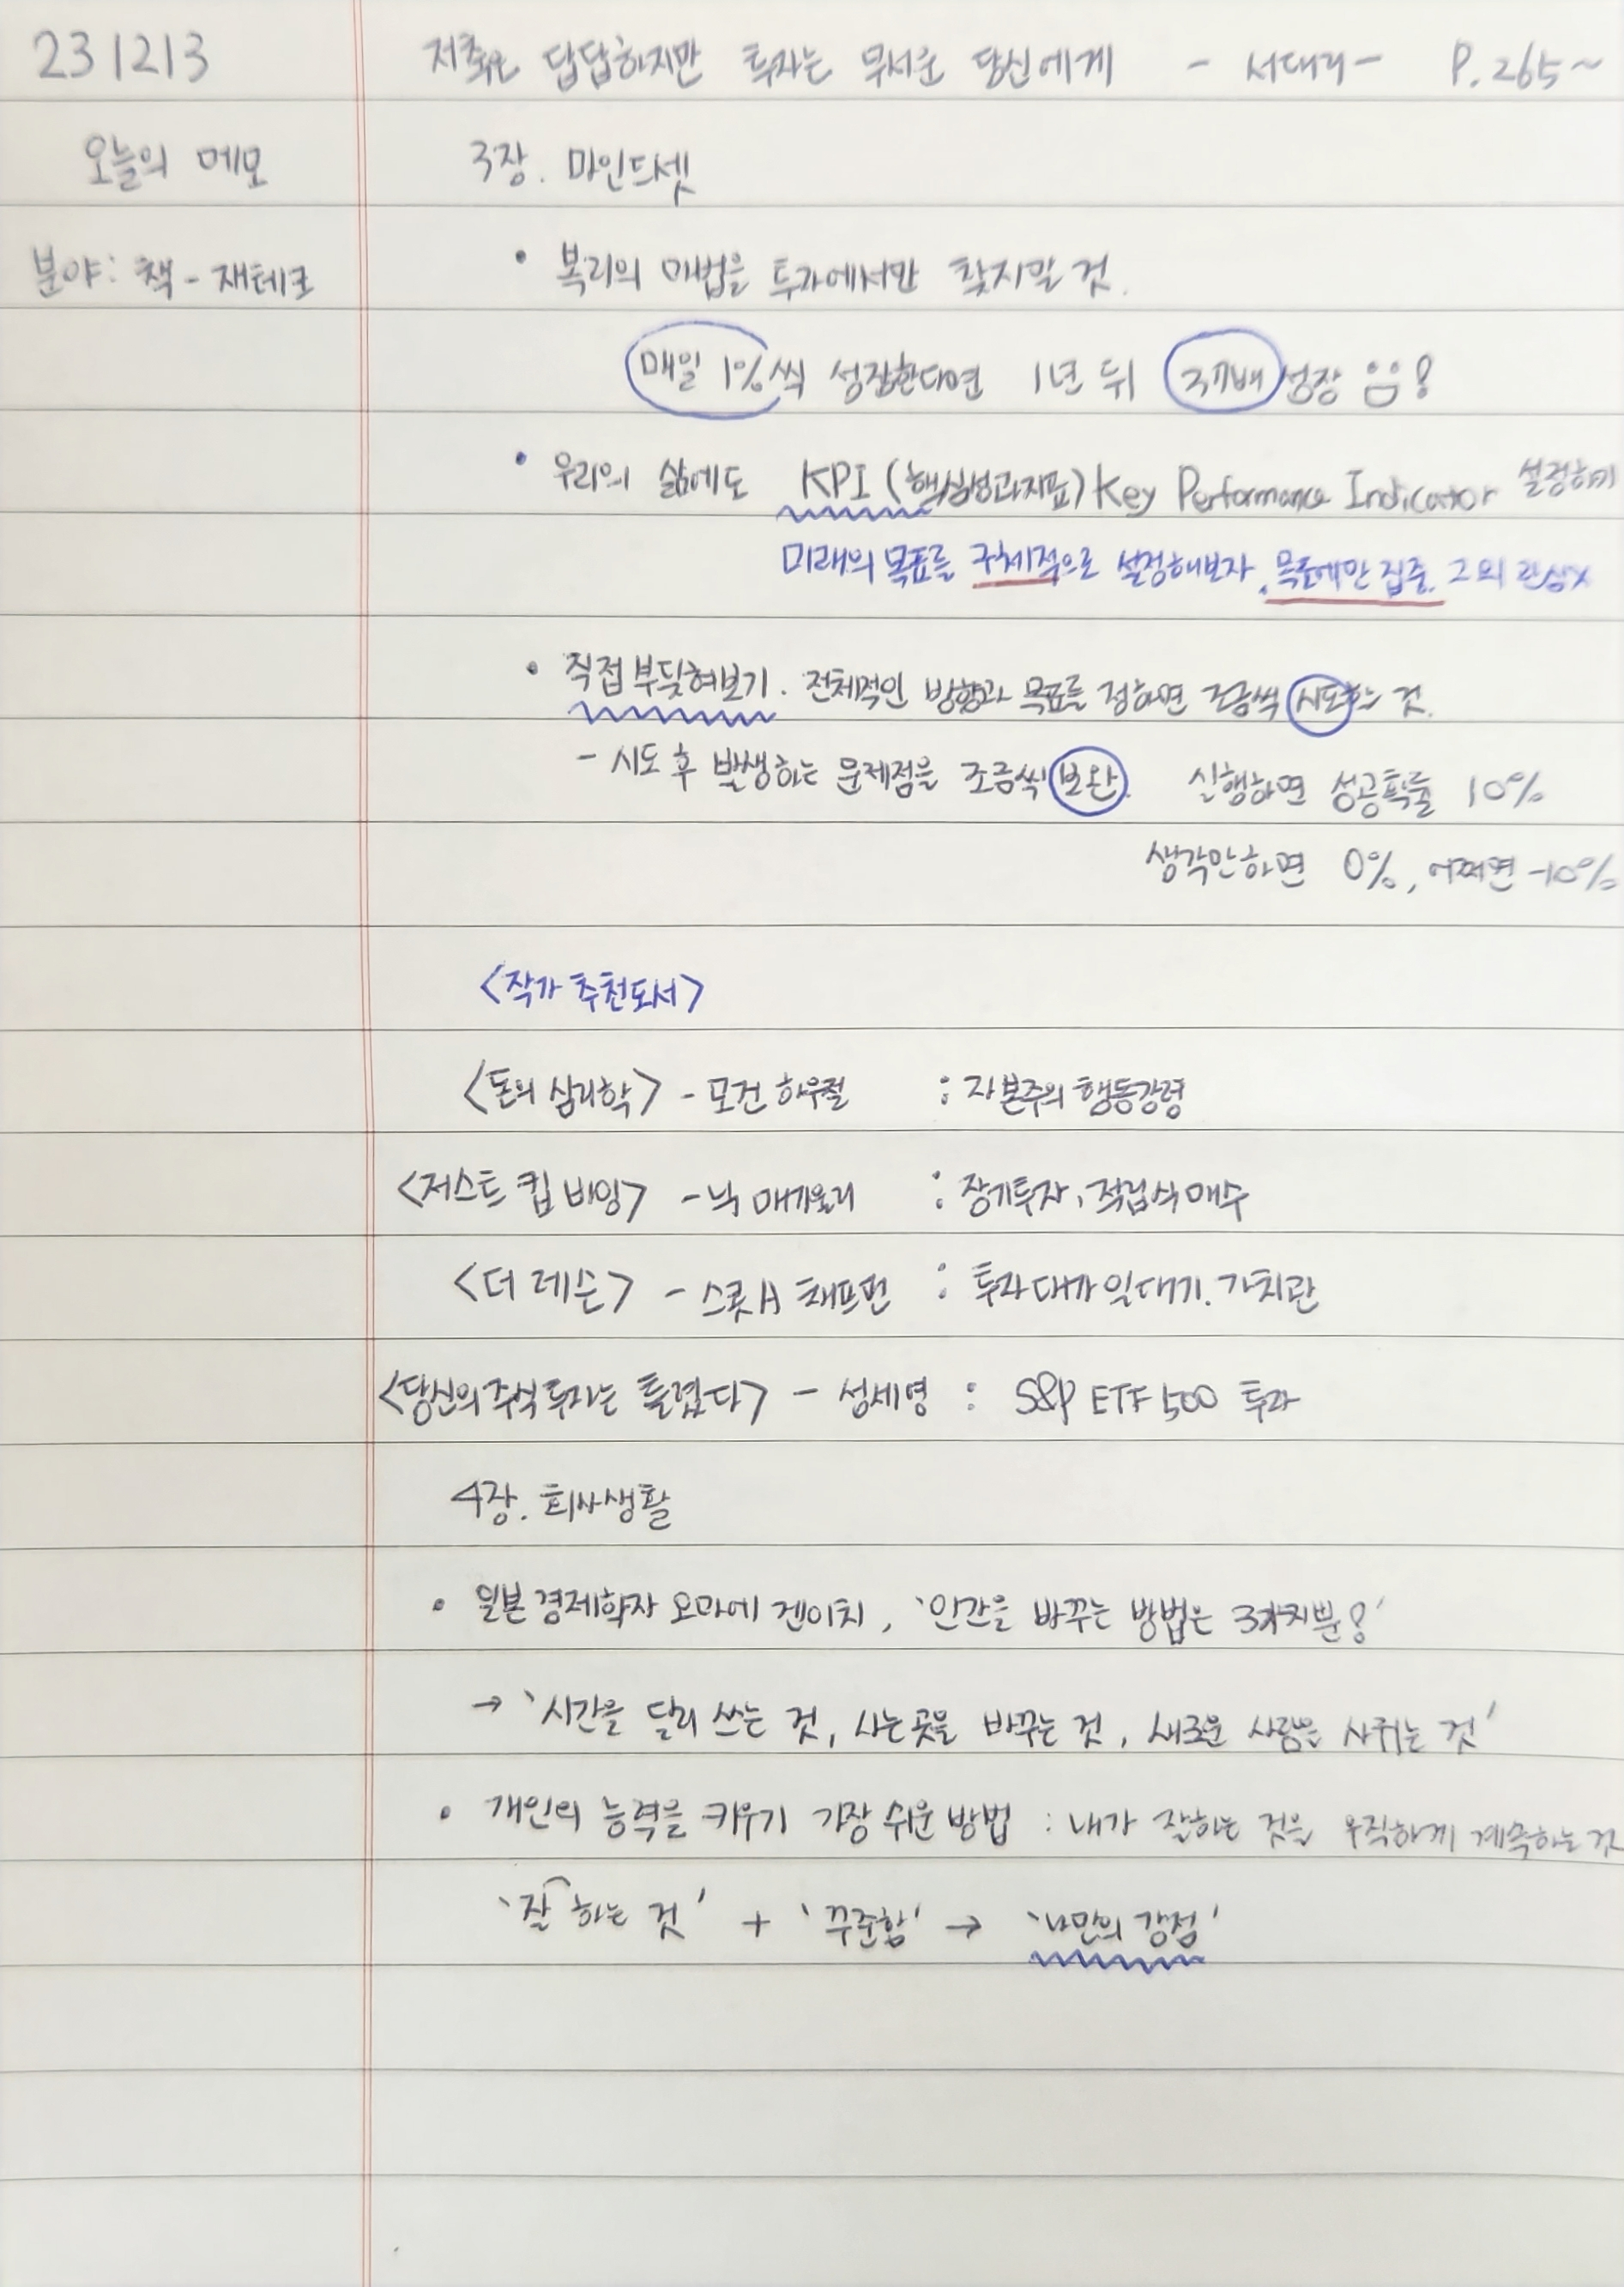 231213 저축은 답답하지만 투자는 무서운 당신에게 - 서대리 - P.265~
오늘의 메모 3장. 마인드셋
분야: 책 - 재테크 • 복리의 마법을 투자에서만 찾지말 것.
매일 1%씩 성장한다면 1년 뒤 37배 성장 !
• 우리의 삶에도 KPI (핵심성과지표) Key Performance Indicator 설정하기
미래의 목표를 구체적으로 설정해보자, 목표에만 집중. 그 외 관심x
• 직접 부딪혀보기. 전체적인 방향과 목표를 정하면 조금씩 시도하는 것.
- 시도 후 발생하는 문제점을 조금씩 보완. 실행하면 성공확률 10%
생각만하면 0%, 어쩌면 -10%
<작가 추천도서>
<돈의 심리학> - 모건 하우절 : 자본주의 행동강령
<저스트 킵 바잉> - 닉 매기울리 : 장기투자, 적립식 매수
<더 레슨> - 스콧 A 채프먼 : 투자 대가 일대기. 가치관
<당신의 주식 투자는 틀렸다> - 성세영 : S&P ETF 500 투자
4장. 회사생활
• 일본 경제학자 오마에 겐이치, '인간을 바꾸는 방법은 3가지뿐!'
→ '시간을 달리 쓰는 것, 사는 곳을 바꾸는 것, 새로운 사람을 사귀는 것'
• 개인의 능력을 키우기 가장 쉬운 방법 : 내가 잘하는 것을 우직하게 계속하는 것
'잘하는 것' + '꾸준함' → '나만의 강점'